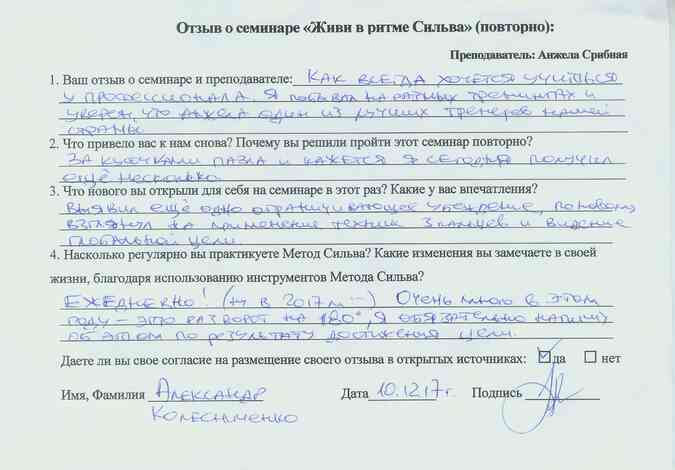 Отзыв о семинаре «Живи в ритме Сильва» (повторно):
Преподаватель: Анжела Срибная
1. Ваш отзыв о семинаре и преподавателе: Как всегда хочется учиться
у профессионала. Я побывал на разных тренингах и
уверен, что Анжела один из лучших тренеров нашей
страны
2. Что привело вас к нам снова? Почему вы решили пройти этот семинар повторно?
За кусочками пазла и кажется я сегодня получил
ещё несколько.
3. Что нового вы открыли для себя на семинаре в этот раз? Какие у вас впечатления?
Выявил ещё одно ограничивающее убеждение, по новому
взглянул на применение техник 3 пальцев и видение
глобальной цели.
4. Насколько регулярно вы практикуете Метод Сильва? Какие изменения вы замечаете в своей
жизни, благодаря использованию инструментов Метода Сильва?
Ежедневно! в 2017 Очень много в этом
году - это разворот на 180°, я обязательно напишу
об этом по результату достижения цели.
Даете ли вы свое согласие на размещение своего отзыва в открытых источниках: да нет
Имя, Фамилия Александр Дата 10.12.17г. Подпись
Колесниченко